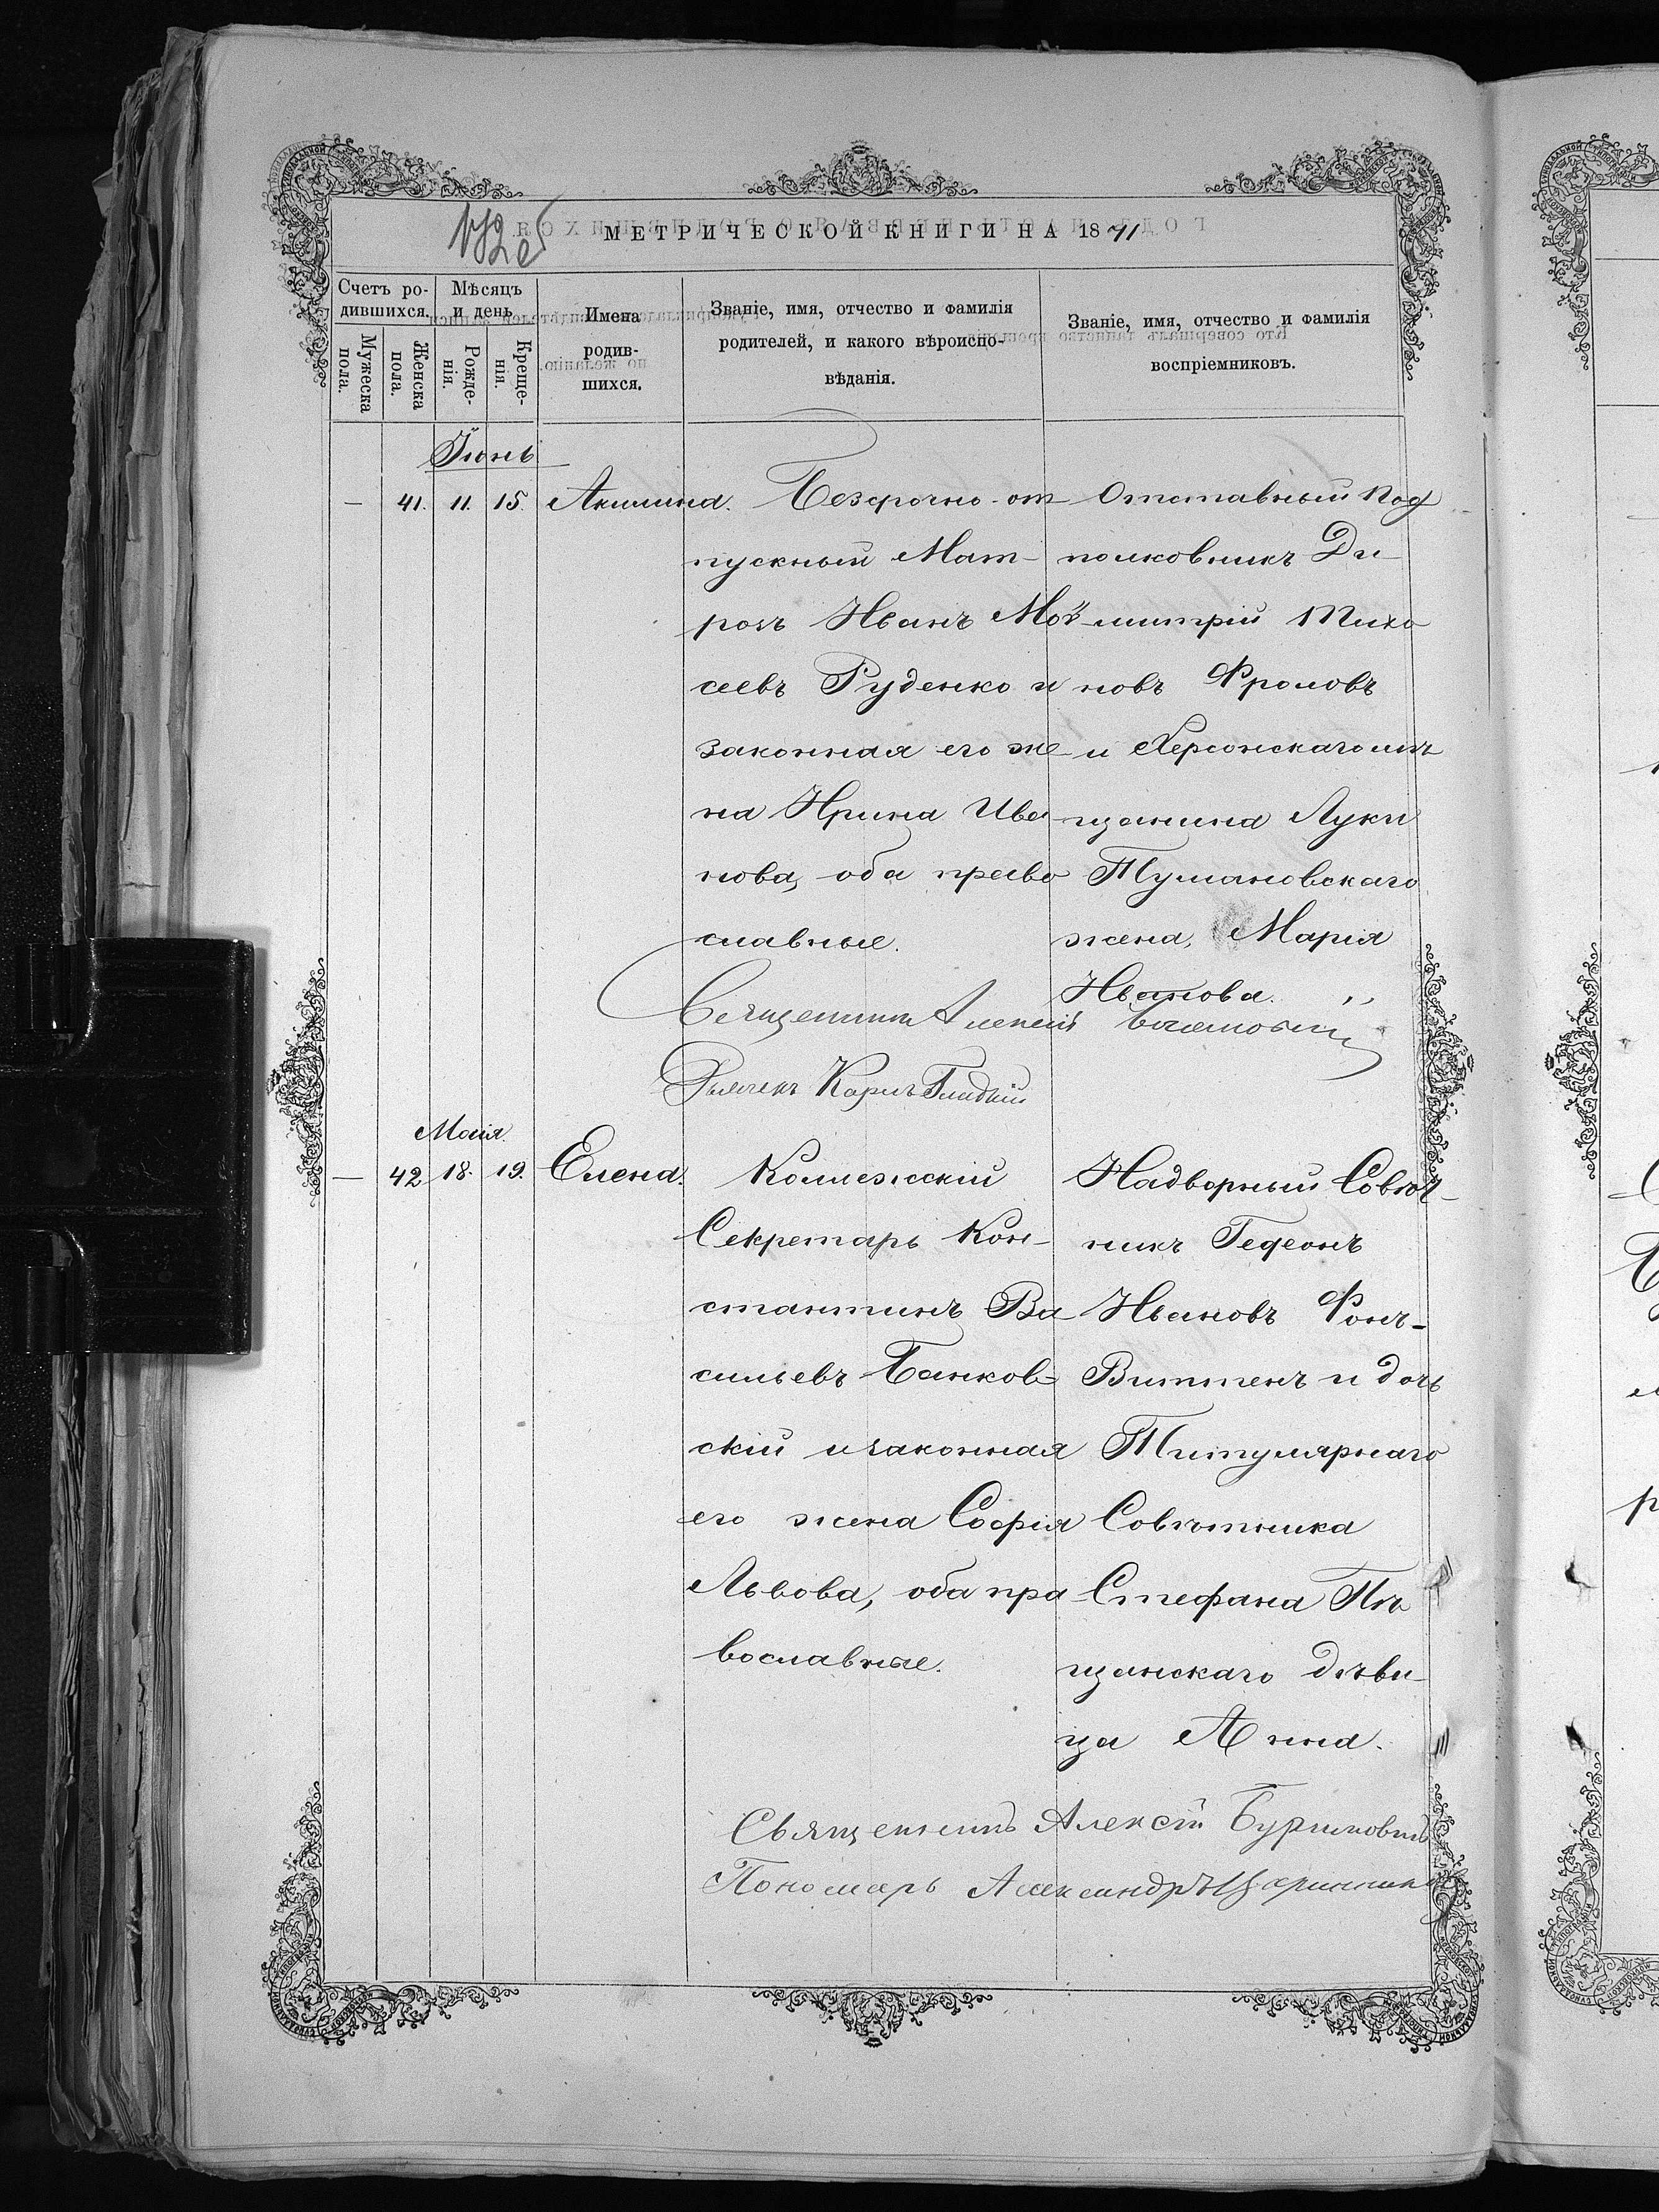 МЕТРИЧЕСКОЙ КНИГИ НА 1871
Счетъ ро-
дившихся.
Мужеска
пола.
Женска
пола.
Мѣсяцъ
и день
Рожде-
нія.
Креще-
нія.
Имена
родив-
шихся.
Званіе, имя, отчество и фамилія
родителей, и какого вѣроиспо-
вѣданія.
Званіе, имя, отчество и фамилія
воспріемниковъ.
Іюнь
— 41. 11. 15. Акилина.
Безсрочно-от
пускный Мат-
розъ Иванъ Мой
сеевъ Руденко и
законная его же-
на Ирина Ива
нова, оба право
славные.
Отставный Под
полковникъ Ди-
митрій Тихо
новъ Фроловъ
и Херсонскаго мѣ
щанина Луки
Тумановскаго
жена, Марія
Иванова.
Священникъ Алексій
Дьячекъ Карпъ Гладкій
Маія.
— 42 18. 19. Елена.
Коллежскій
Секретарь Кон-
стантинъ Ва
сильевъ Банков-
скій и законная
его жена Софія
Львова, оба пра-
вославные.
Надворный Совѣт-
никъ Гедеонъ
Ивановъ Фонъ-
Виттенъ и дочь
Титулярнаго
Совѣтника
Стефана Пѣ
щанскаго дѣви-
ца Анна.
Священникъ Алексій
Пономарь Александръ